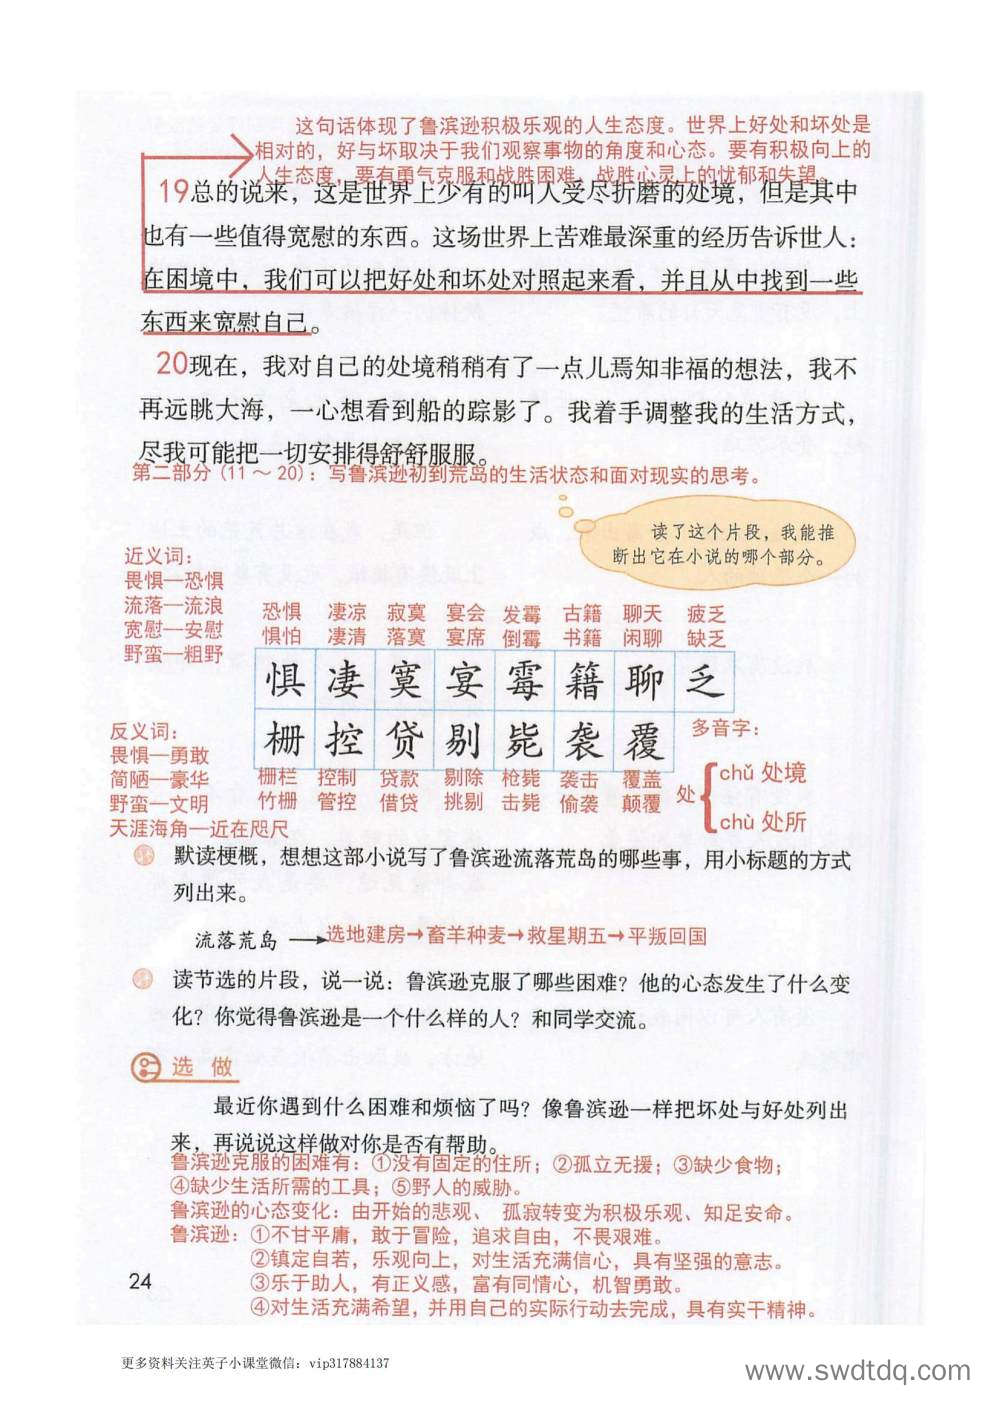 这句话体现了鲁滨逊积极乐观的人生态度。世界上好处和坏处是
相对的，好与坏取决于我们观察事物的角度和心态。要有积极向上的
人生态度，要有勇气克服和战胜困难，战胜心灵上的忧郁和失望。
19总的说来，这是世界上少有的叫人受尽折磨的处境，但是其中
也有一些值得宽慰的东西。这场世界上苦难最深重的经历告诉世人：
在困境中，我们可以把好处和坏处对照起来看，并且从中找到一些
东西来宽慰自己。
20现在，我对自己的处境稍稍有了一点儿焉知非福的想法，我不
再远眺大海，一心想看到船的踪影了。我着手调整我的生活方式，
尽我可能把一切安排得舒舒服服。
第二部分（11～20）：写鲁滨逊初到荒岛的生活状态和面对现实的思考。
读了这个片段，我能推
断出它在小说的哪个部分。
近义词：
畏惧—恐惧
流落—流浪
宽慰—安慰
野蛮—粗野
恐惧 凄凉 寂寞 宴会 发霉 古籍 聊天 疲乏
惧怕 凄清 落寞 宴席 倒霉 书籍 闲聊 缺乏
惧 凄 寞 宴 霉 籍 聊 乏
栅 控 贷 剔 毙 袭 覆
栅栏 控制 贷款 剔除 枪毙 袭击 覆盖
竹栅 管控 借贷 挑剔 击毙 偷袭 颠覆
反义词：
畏惧—勇敢
简陋—豪华
野蛮—文明
天涯海角—近在咫尺
多音字：
处
chǔ 处境
chù 处所
默读梗概，想想这部小说写了鲁滨逊流落荒岛的哪些事，用小标题的方式
列出来。
流落荒岛→选地建房→畜羊种麦→救星期五→平叛回国
读节选的片段，说一说：鲁滨逊克服了哪些困难？他的心态发生了什么变
化？你觉得鲁滨逊是一个什么样的人？和同学交流。
选做
最近你遇到什么困难和烦恼了吗？像鲁滨逊一样把坏处与好处列出
来，再说说这样做对你是否有帮助。
鲁滨逊克服的困难有：①没有固定的住所；②孤立无援；③缺少食物；
④缺少生活所需的工具；⑤野人的威胁。
鲁滨逊的心态变化：由开始的悲观、孤寂转变为积极乐观、知足安命。
鲁滨逊：①不甘平庸，敢于冒险，追求自由，不畏艰难。
②镇定自若，乐观向上，对生活充满信心，具有坚强的意志。
③乐于助人，有正义感，富有同情心，机智勇敢。
④对生活充满希望，并用自己的实际行动去完成，具有实干精神。
24
更多资料关注英子小课堂微信：vip317884137
www.swdtdq.com